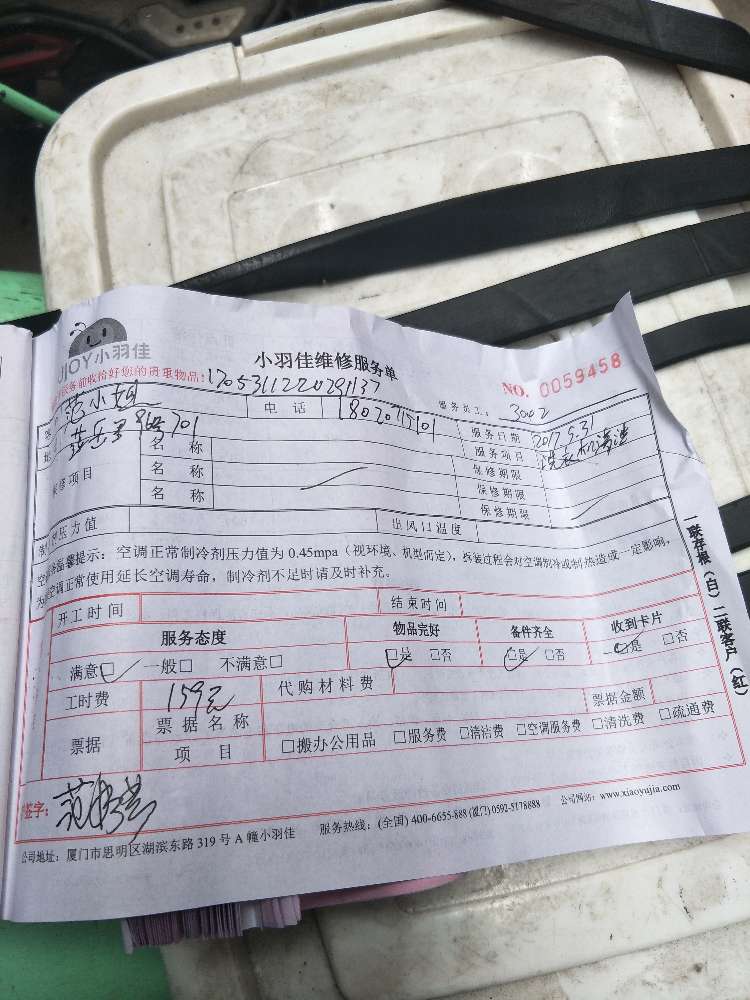 JOY小羽佳
小羽佳维修服务单
NO. 0059458
务前收拾好您的贵重物品:
1705311220291137
服务员工: 3002
范小姐 电话 服务日期 2017.5.31
701 服务项目 洗衣机清洗
保修项目 名称 保修期限
名称 保修期限
名称 保修期限
压力值 出风口温度
温馨提示:空调正常制冷剂压力值为0.45mpa(视环境、机型而定),拆装过程会对空调制冷或制热造成一定影响,
空调正常使用延长空调寿命,制冷剂不足时请及时补充。
开工时间 结束时间
服务态度 物品完好 备件齐全 收到卡片
满意□ 一般□ 不满意□ □是 □否 □是 □否 □是 □否
工时费 159元 代购材料费
票据 票据名称 票据金额
项目 □搬办公用品 □服务费 □清洁费 □空调服务费 □清洗费 □疏通费
签字:
公司地址:厦门市思明区湖滨东路319号A幢小羽佳 服务热线:(全国) 400-6655-888 (厦门) 0592-5178888 公司网站:www.xiaoyujia.com
一联存根(白) 二联客户(红)